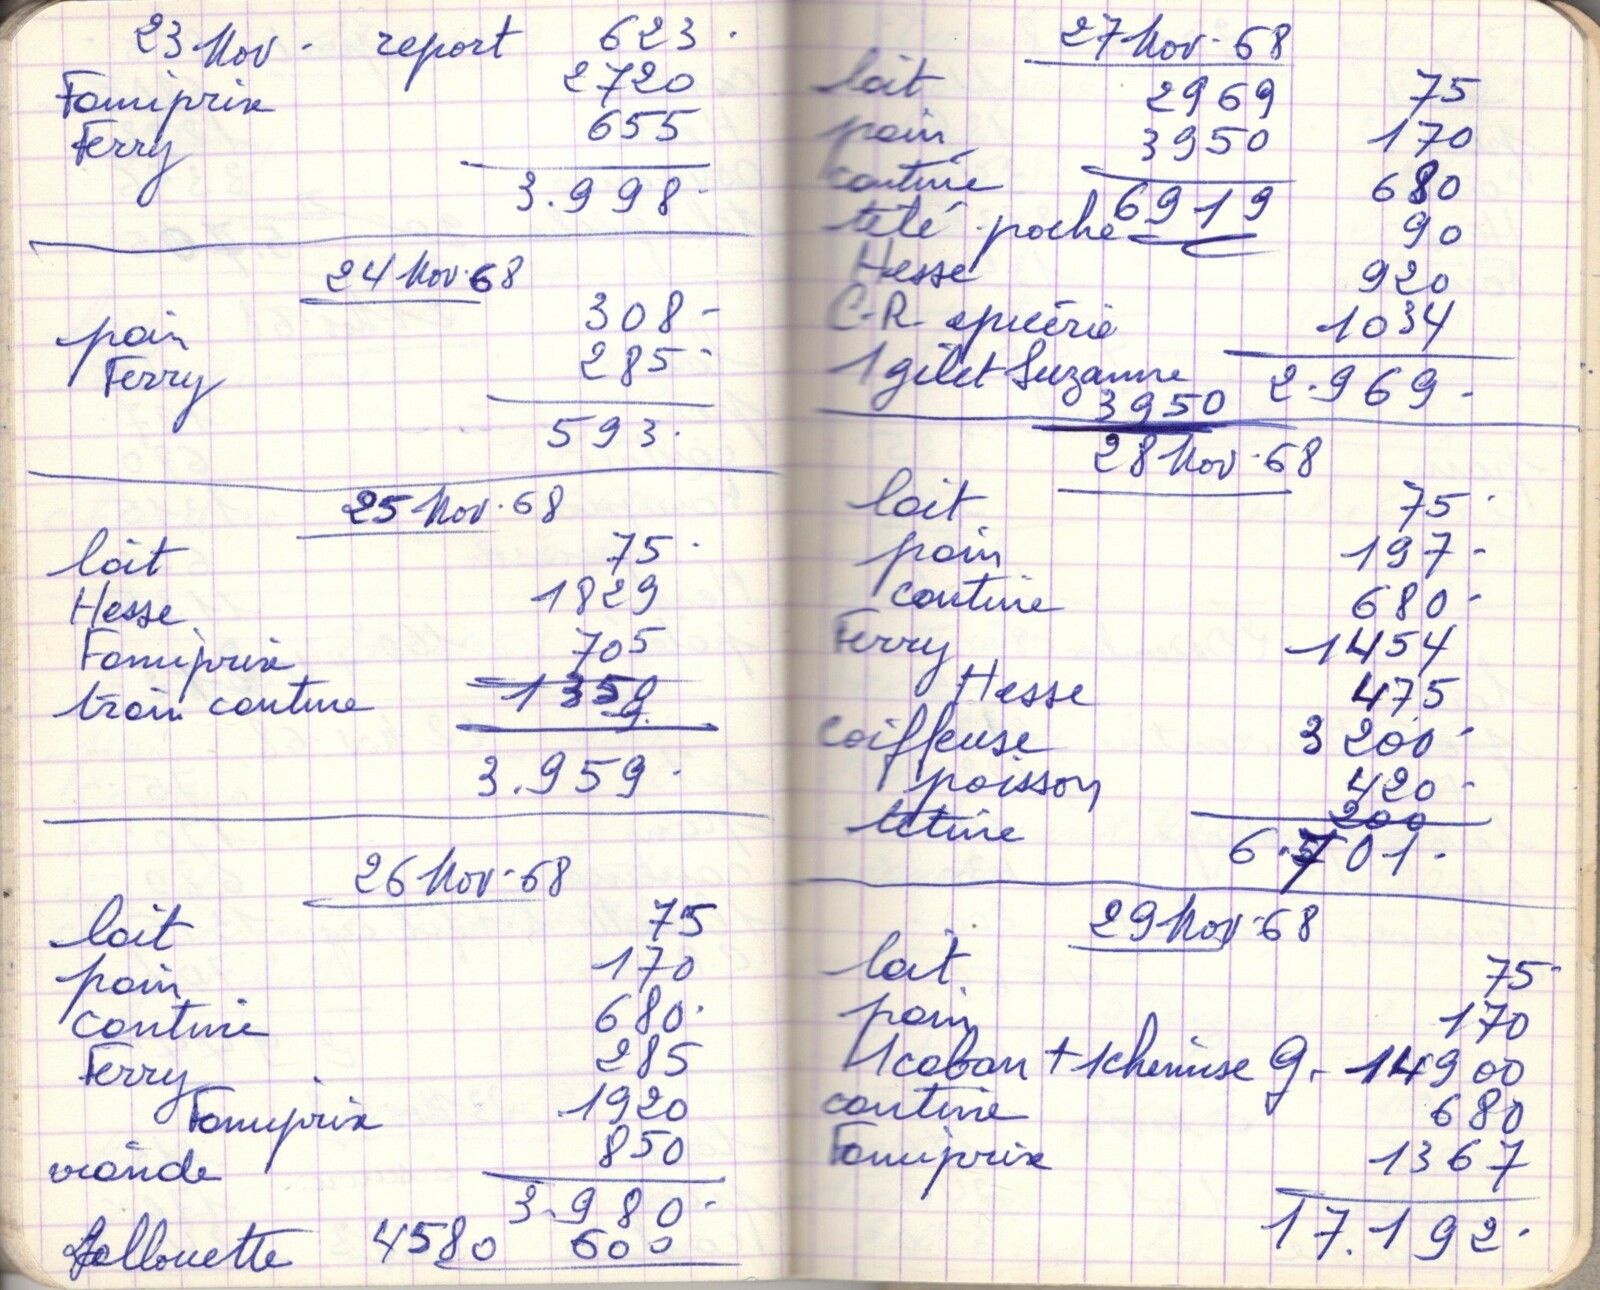 23 Nov - report 623.
Famiprix 2720
Ferry 655
3.998-
24 Nov. 68
pain 308-
Ferry 285-
593.
25 Nov. 68
lait 75.
Hesse 1829
Famiprix 705
train cantine
3.959.
26 Nov. 68
lait 75
pain 170
cantine 680.
Ferry 285
Famiprix 1920
viande 850
3.980-
4580 600
27 Nov. 68
lait 2969 75
pain 3950 170
cantine 6919 680
télé poche 90
Hesse 920
C-R. epicérie 1034
1 gilet Suzanne 2.969-
3950
28 Nov. 68
lait 75.
pain 197-
cantine 680-
Ferry 1454
Hesse 475
coiffeuse 3200.
poisson 420-
tetine 200
6.701.
29 Nov. 68
lait 75-
pain 170
1 caban + 1 chemise G. 14900
cantine 680
Famiprix 1367
17.192.